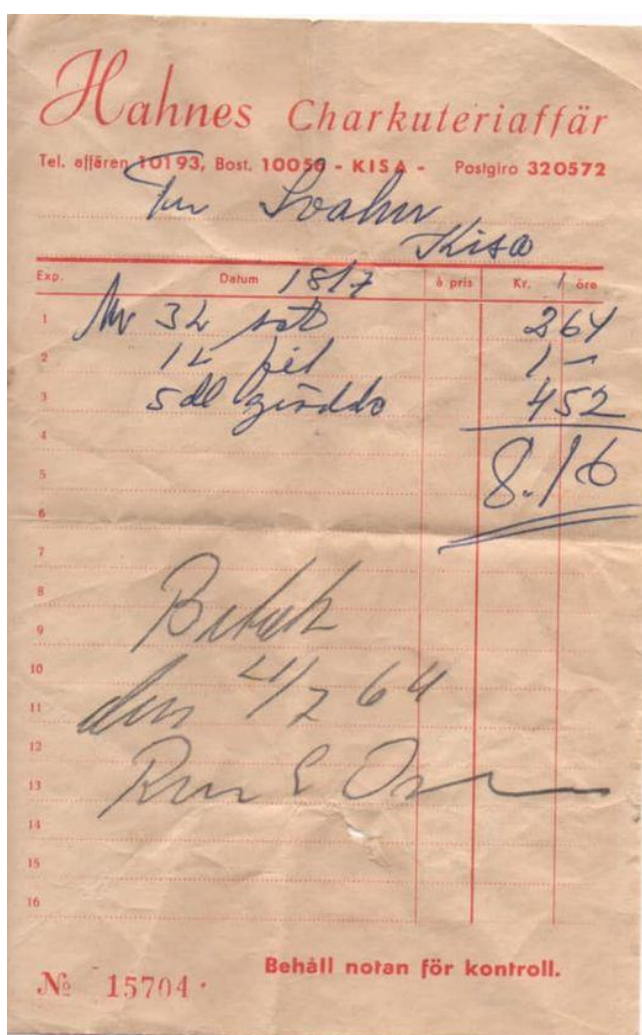 Hahnes Charkuteriaffär
Tel. affären 10193, Bost. 10050 - KISA - Postgiro 320572
Svahn
Kisa
Exp. Datum 18/7 à pris Kr. / öre
1 3 L 2 64
2 1 L fil 1 -
3 5 dl grädde 4 52
4
5 8.16
6
7
8
9
10
11 den /7 64
12
13
14
15
16
Behåll notan för kontroll.
№ 15704